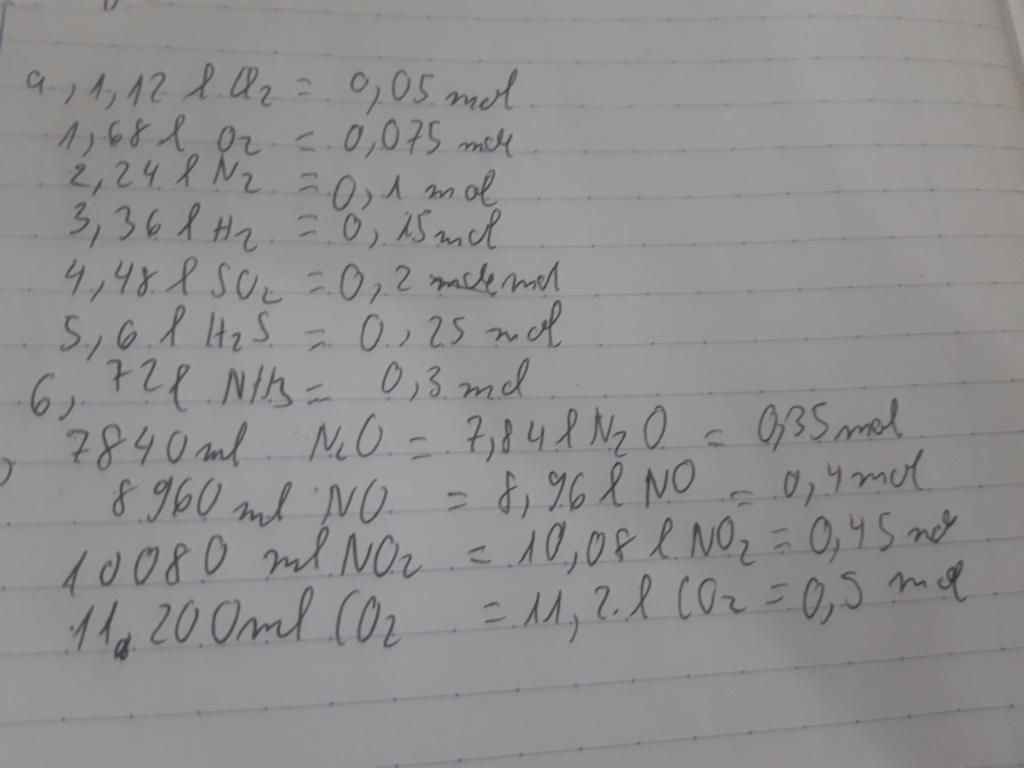 a, 1,12 l Cl2 = 0,05 mol
1,68 l O2 = 0,075 mol
2,24 l N2 = 0,1 mol
3,36 l H2 = 0,15 mol
4,48 l SO2 = 0,2 mol
5,6 l H2S = 0,25 mol
6,72 l NH3 = 0,3 mol
7840 ml N2O = 7,84 l N2O = 0,35 mol
8960 ml NO = 8,96 l NO = 0,4 mol
10080 ml NO2 = 10,08 l NO2 = 0,45 mol
11200 ml CO2 = 11,2 l CO2 = 0,5 mol